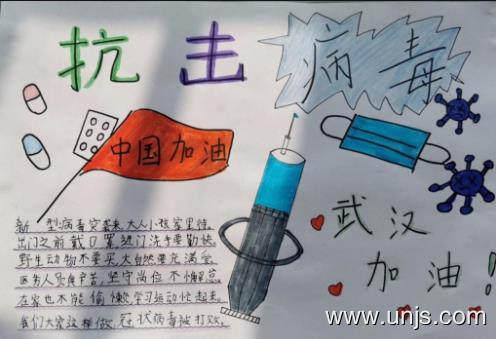 抗击病毒
中国加油
新型病毒突袭来,大人小孩家里待。
出门之前戴口罩,进门洗手要勤快。
野生动物不要买,大自然要充满爱。
医务人员辛苦,坚守岗位不懈怠。
在家也不能偷懒,学习运动忙起来。
我们大家这样做,冠状病毒被打败。
武汉
加油!
www.unjs.com